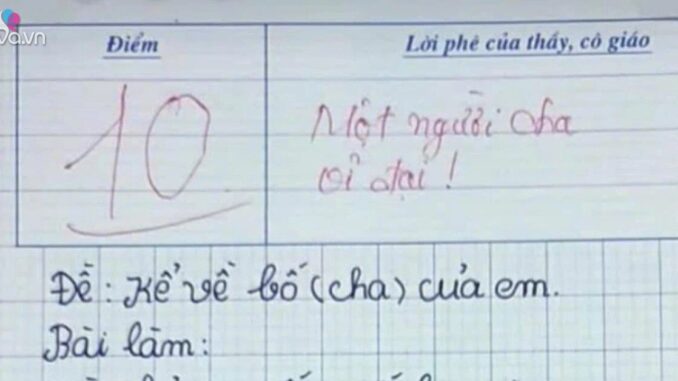 va.vn
Điểm
Lời phê của thầy, cô giáo
10
Một người cha
vĩ đại!
Đề: Kể về bố (cha) của em.
Bài làm: